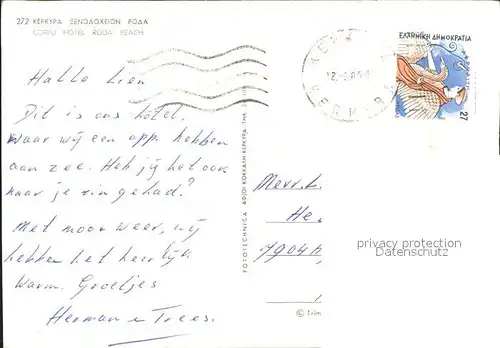 272 ΚΕΡΚΥΡΑ ΞΕΝΟΔΟΧΕΙΟΝ ΡΟΔΑ
CORFU HOTEL RODA BEACH
Hallo Lien
Dit is ons hotel,
waar wij een app. hebben
aan zee. Heb jij het ook
naar je zin gehad?
Met mooi weer, wij
hebben het heerlijk
Warm. Groetjes
Herman en Trees.
FOTOTECHNICA ΑΦΟΙ ΚΟΚΚΑΛΗ ΚΕΡΚΥΡΑ
ΕΛΛΗΝΙΚΗ ΔΗΜΟΚΡΑΤΙΑ
27
Mevr.
He.
7904
privacy protection
Datenschutz